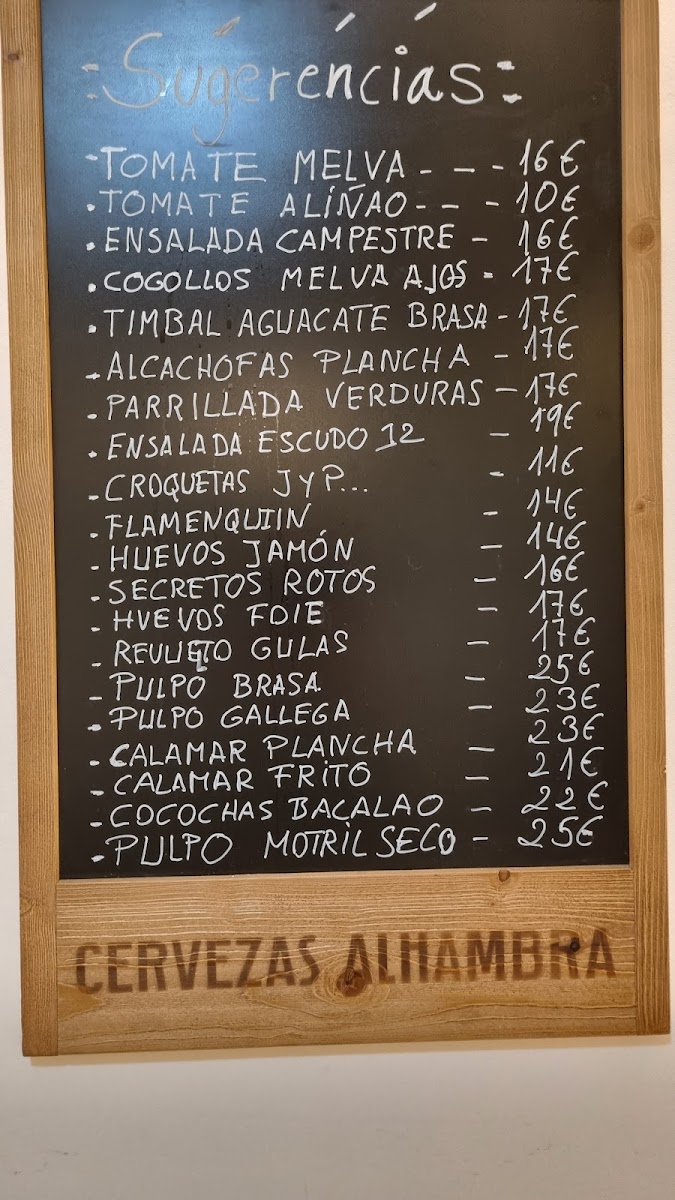 :Sugerencias:
-TOMATE MELVA - - - 16€
.TOMATE ALIÑAO - - - 10€
.ENSALADA CAMPESTRE - 16€
.COGOLLOS MELVA AJOS - 17€
.TIMBAL AGUACATE BRASA - 17€
-ALCACHOFAS PLANCHA - 17€
-PARRILLADA VERDURAS - 17€
.ENSALADA ESCUDO 12 - 19€
-CROQUETAS JYP... - 11€
-FLAMENQUIIN - 14€
-HUEVOS JAMÓN - 14€
-SECRETOS ROTOS - 16€
-HUEVOS FOIE - 17€
-REVUELTO GULAS - 17€
-PULPO BRASA - 25€
-PULPO GALLEGA - 23€
-CALAMAR PLANCHA - 23€
-CALAMAR FRITO - 21€
-COCOCHAS BACALAO - 22€
.PULPO MOTRIL SECO - 25€
CERVEZAS ALHAMBRA